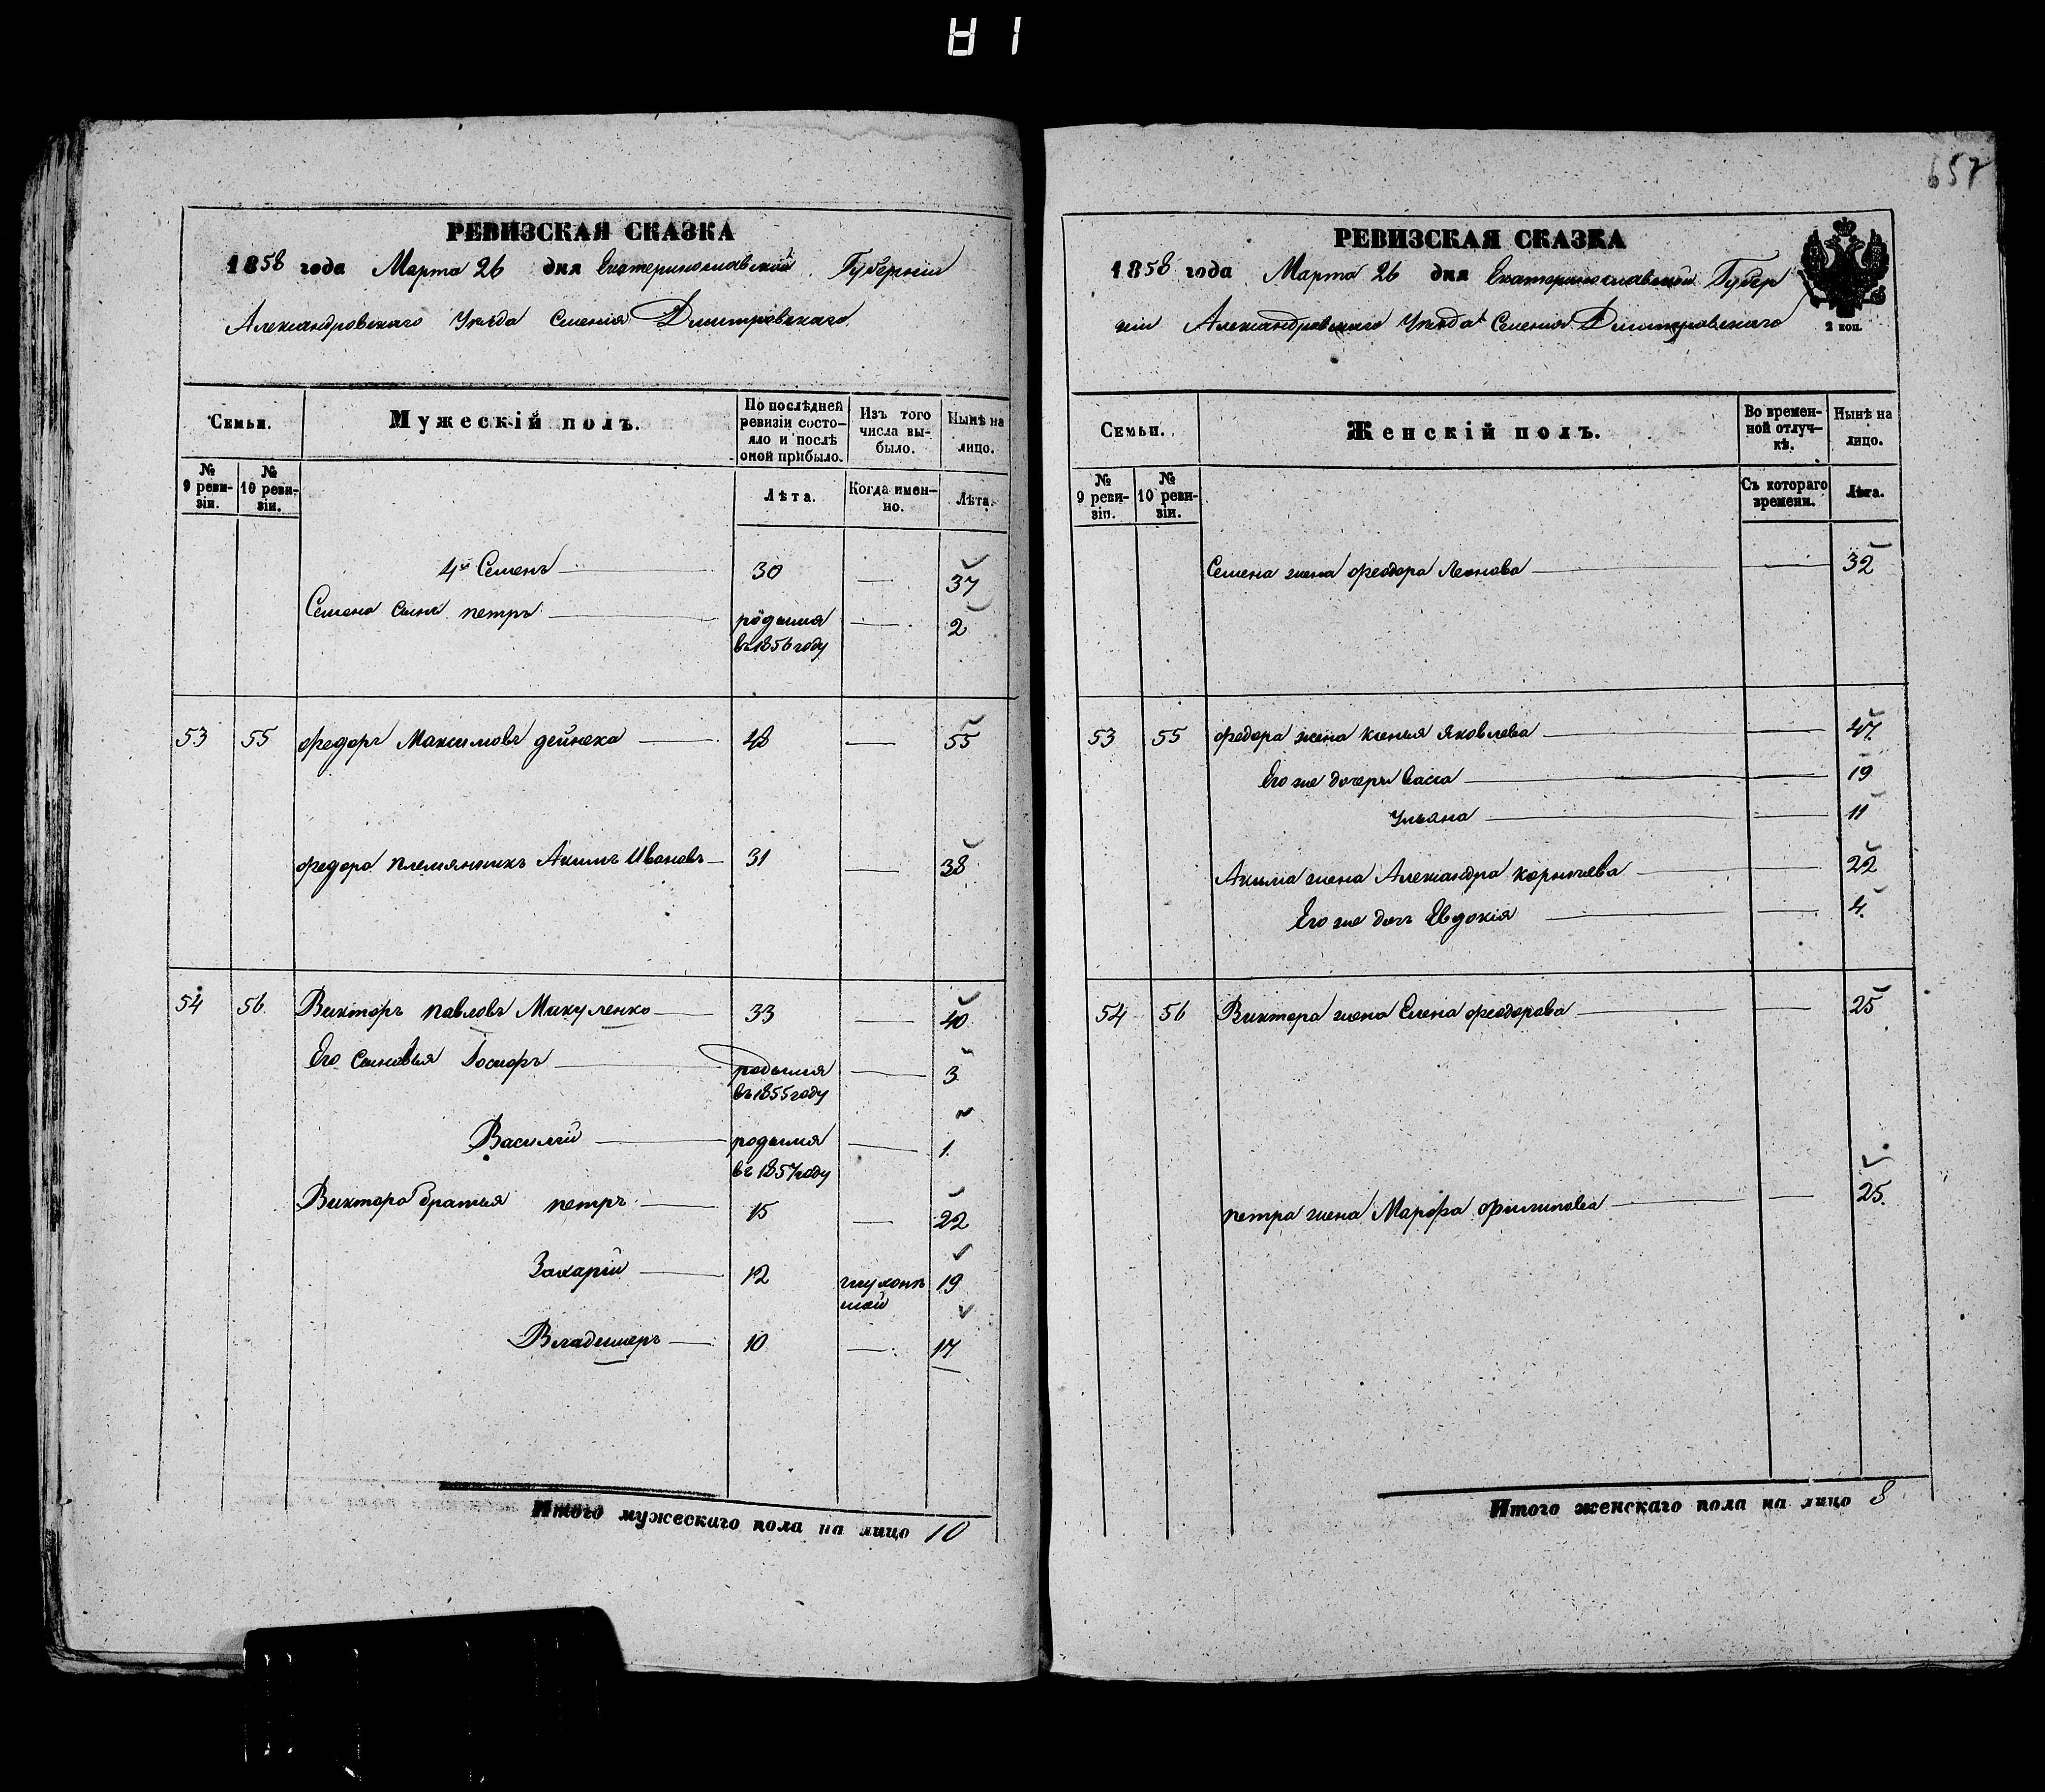 РЕВИЗСКАЯ СКАЗКА
1858 года Марта 26 дня Екатеринославской Губернiи
Александровскаго Уезда Селенiя Дмитровскаго
Семьи.
Мужескiй полъ.
По послѣдней ревизiи состо-
яло и послѣ
оной прибыло.
Изъ того
числа вы-
было.
Нынѣ на
лицо.
№
9 реви-
зiи.
№
10 реви-
зiи.
Лѣта.
Когда имен-
но.
Лѣта.
4й Семенъ 30 — 37
Семена сынъ петръ родился
въ 1856 году — 2
53 55 федоръ Максимовъ дейнека 48 — 55
федора племянникъ Акимъ Ивановъ 31 — 38
54 56 Викторъ павловъ Микуленко 33 — 40
Его сыновья Iосифъ родился
въ 1855 году — 3
Василiй родился
въ 1857 году — 1
Виктора братья петръ 15 — 22
Захарiй 12 глухонѣ
мой 19
Владимеръ 10 — 17
Итого мужескаго пола на лицо 10
657
РЕВИЗСКАЯ СКАЗКА
1858 года Марта 26 дня Екатеринославской Губер
нiи Александровскаго Уезда Селенiя Дмитровскаго
2 коп.
Семьи.
Женскiй полъ.
Во времен-
ной отлуч-
кѣ.
Нынѣ на
лицо.
№
9 реви-
зiи.
№
10 реви-
зiи.
Съ котораго
времени.
Лѣта.
Семена жена феодора Леонова — 32
53 55 федора жена ксенья Яковлева — 47
Его же дочери Васса — 19
Ульяна — 11
Акима жена Александра корнѣева — 22
Его же дочь Евдокiя — 4
54 56 Виктора жена Елена феодорова — 25
петра жена Марфа филипова — 25
Итого женскаго пола на лицо 8